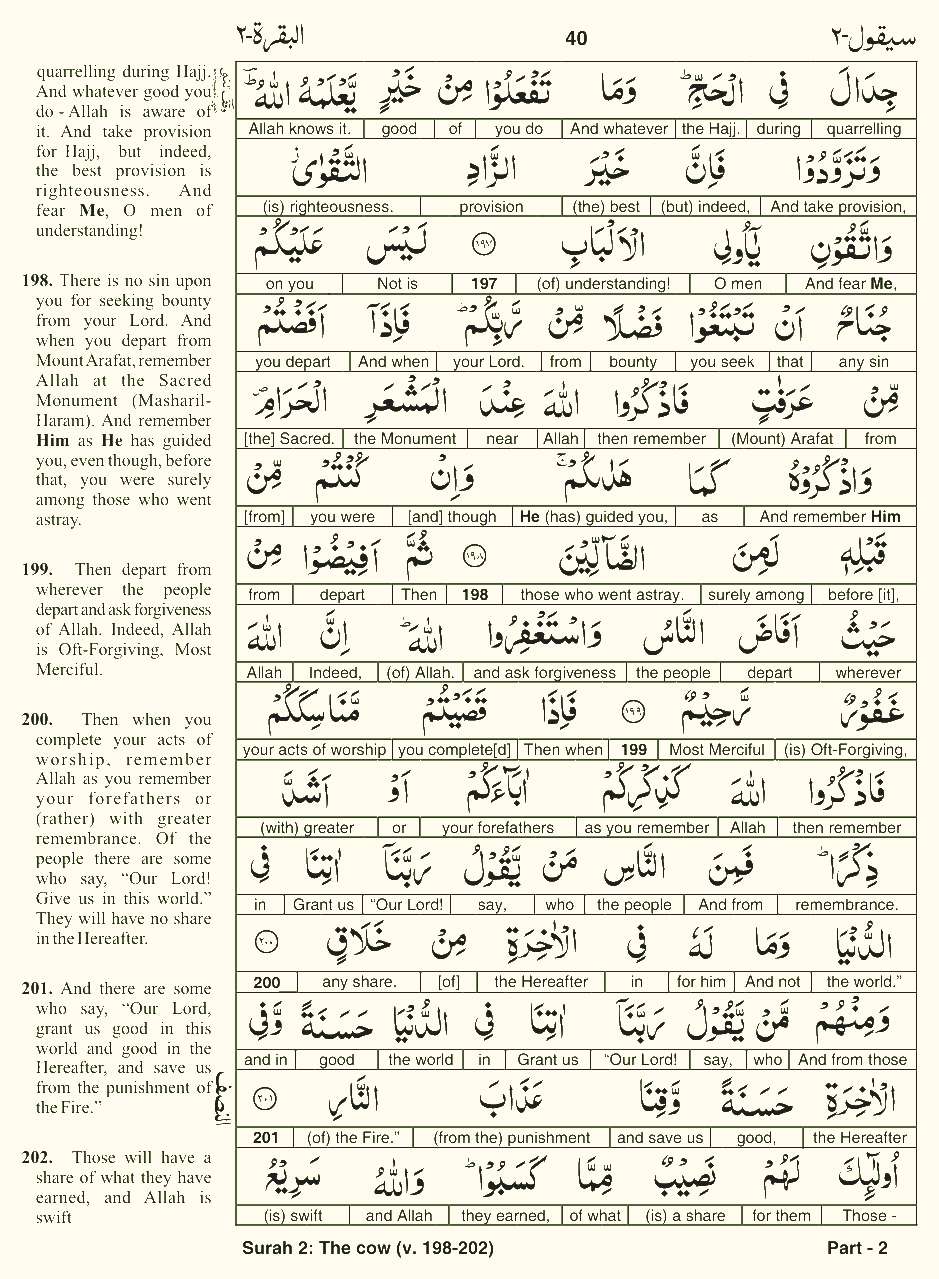 البقرة-٢
40
سيقول-٢
quarrelling during Hajj.
And whatever good you
do - Allah is aware of
it. And take provision
for Hajj, but indeed,
the best provision is
righteousness. And
fear Me, O men of
understanding!
198. There is no sin upon
you for seeking bounty
from your Lord. And
when you depart from
Mount Arafat, remember
Allah at the Sacred
Monument (Masharil-
Haram). And remember
Him as He has guided
you, even though, before
that, you were surely
among those who went
astray.
199. Then depart from
wherever the people
depart and ask forgiveness
of Allah. Indeed, Allah
is Oft-Forgiving, Most
Merciful.
200. Then when you
complete your acts of
worship, remember
Allah as you remember
your forefathers or
(rather) with greater
remembrance. Of the
people there are some
who say, “Our Lord!
Give us in this world.”
They will have no share
in the Hereafter.
201. And there are some
who say, “Our Lord,
grant us good in this
world and good in the
Hereafter, and save us
from the punishment of
the Fire.”
202. Those will have a
share of what they have
earned, and Allah is
swift
جِدَالَ فِي الْحَجِّ ؕ وَمَا تَفْعَلُوْا مِنْ خَيْرٍ يَّعْلَمْهُ اللّٰهُ ؕ
Allah knows it. good of you do And whatever the Hajj. during quarrelling
وَتَزَوَّدُوْا فَاِنَّ خَيْرَ الزَّادِ التَّقْوٰى
(is) righteousness. provision (the) best (but) indeed, And take provision,
وَاتَّقُوْنِ يٰۤاُولِي الْاَلْبَابِ ١٩٧ لَيْسَ عَلَيْكُمْ
on you Not is 197 (of) understanding! O men And fear Me,
جُنَاحٌ اَنْ تَبْتَغُوْا فَضْلًا مِّنْ رَّبِّكُمْ ؕ فَاِذَاۤ اَفَضْتُمْ
you depart And when your Lord. from bounty you seek that any sin
مِّنْ عَرَفٰتٍ فَاذْكُرُوا اللّٰهَ عِنْدَ الْمَشْعَرِ الْحَرَامِ ۪
[the] Sacred. the Monument near Allah then remember (Mount) Arafat from
وَاذْكُرُوْهُ كَمَا هَدٰىكُمْ ۚ وَاِنْ كُنْتُمْ مِّنْ
[from] you were [and] though He (has) guided you, as And remember Him
قَبْلِهٖ لَمِنَ الضَّآلِّيْنَ ١٩٨ ثُمَّ اَفِيْضُوْا مِنْ
from depart Then 198 those who went astray. surely among before [it],
حَيْثُ اَفَاضَ النَّاسُ وَاسْتَغْفِرُوا اللّٰهَ ؕ اِنَّ اللّٰهَ
Allah Indeed, (of) Allah. and ask forgiveness the people depart wherever
غَفُوْرٌ رَّحِيْمٌ ١٩٩ فَاِذَا قَضَيْتُمْ مَّنَاسِكَكُمْ
your acts of worship you complete[d] Then when 199 Most Merciful (is) Oft-Forgiving,
فَاذْكُرُوا اللّٰهَ كَذِكْرِكُمْ اٰبَآءَكُمْ اَوْ اَشَدَّ
(with) greater or your forefathers as you remember Allah then remember
ذِكْرًا ؕ فَمِنَ النَّاسِ مَنْ يَّقُوْلُ رَبَّنَاۤ اٰتِنَا فِي
in Grant us “Our Lord! say, who the people And from remembrance.
الدُّنْيَا وَمَا لَهٗ فِي الْاٰخِرَةِ مِنْ خَلَاقٍ ٢٠٠
200 any share. [of] the Hereafter in for him And not the world.”
وَمِنْهُمْ مَّنْ يَّقُوْلُ رَبَّنَاۤ اٰتِنَا فِي الدُّنْيَا حَسَنَةً وَّفِي
and in good the world in Grant us “Our Lord! say, who And from those
الْاٰخِرَةِ حَسَنَةً وَّقِنَا عَذَابَ النَّارِ ٢٠١
201 (of) the Fire.” (from the) punishment and save us good, the Hereafter
اُولٰٓئِكَ لَهُمْ نَصِيْبٌ مِّمَّا كَسَبُوْا ؕ وَاللّٰهُ سَرِيْعُ
(is) swift and Allah they earned, of what (is) a share for them Those -
Surah 2: The cow (v. 198-202)
Part - 2